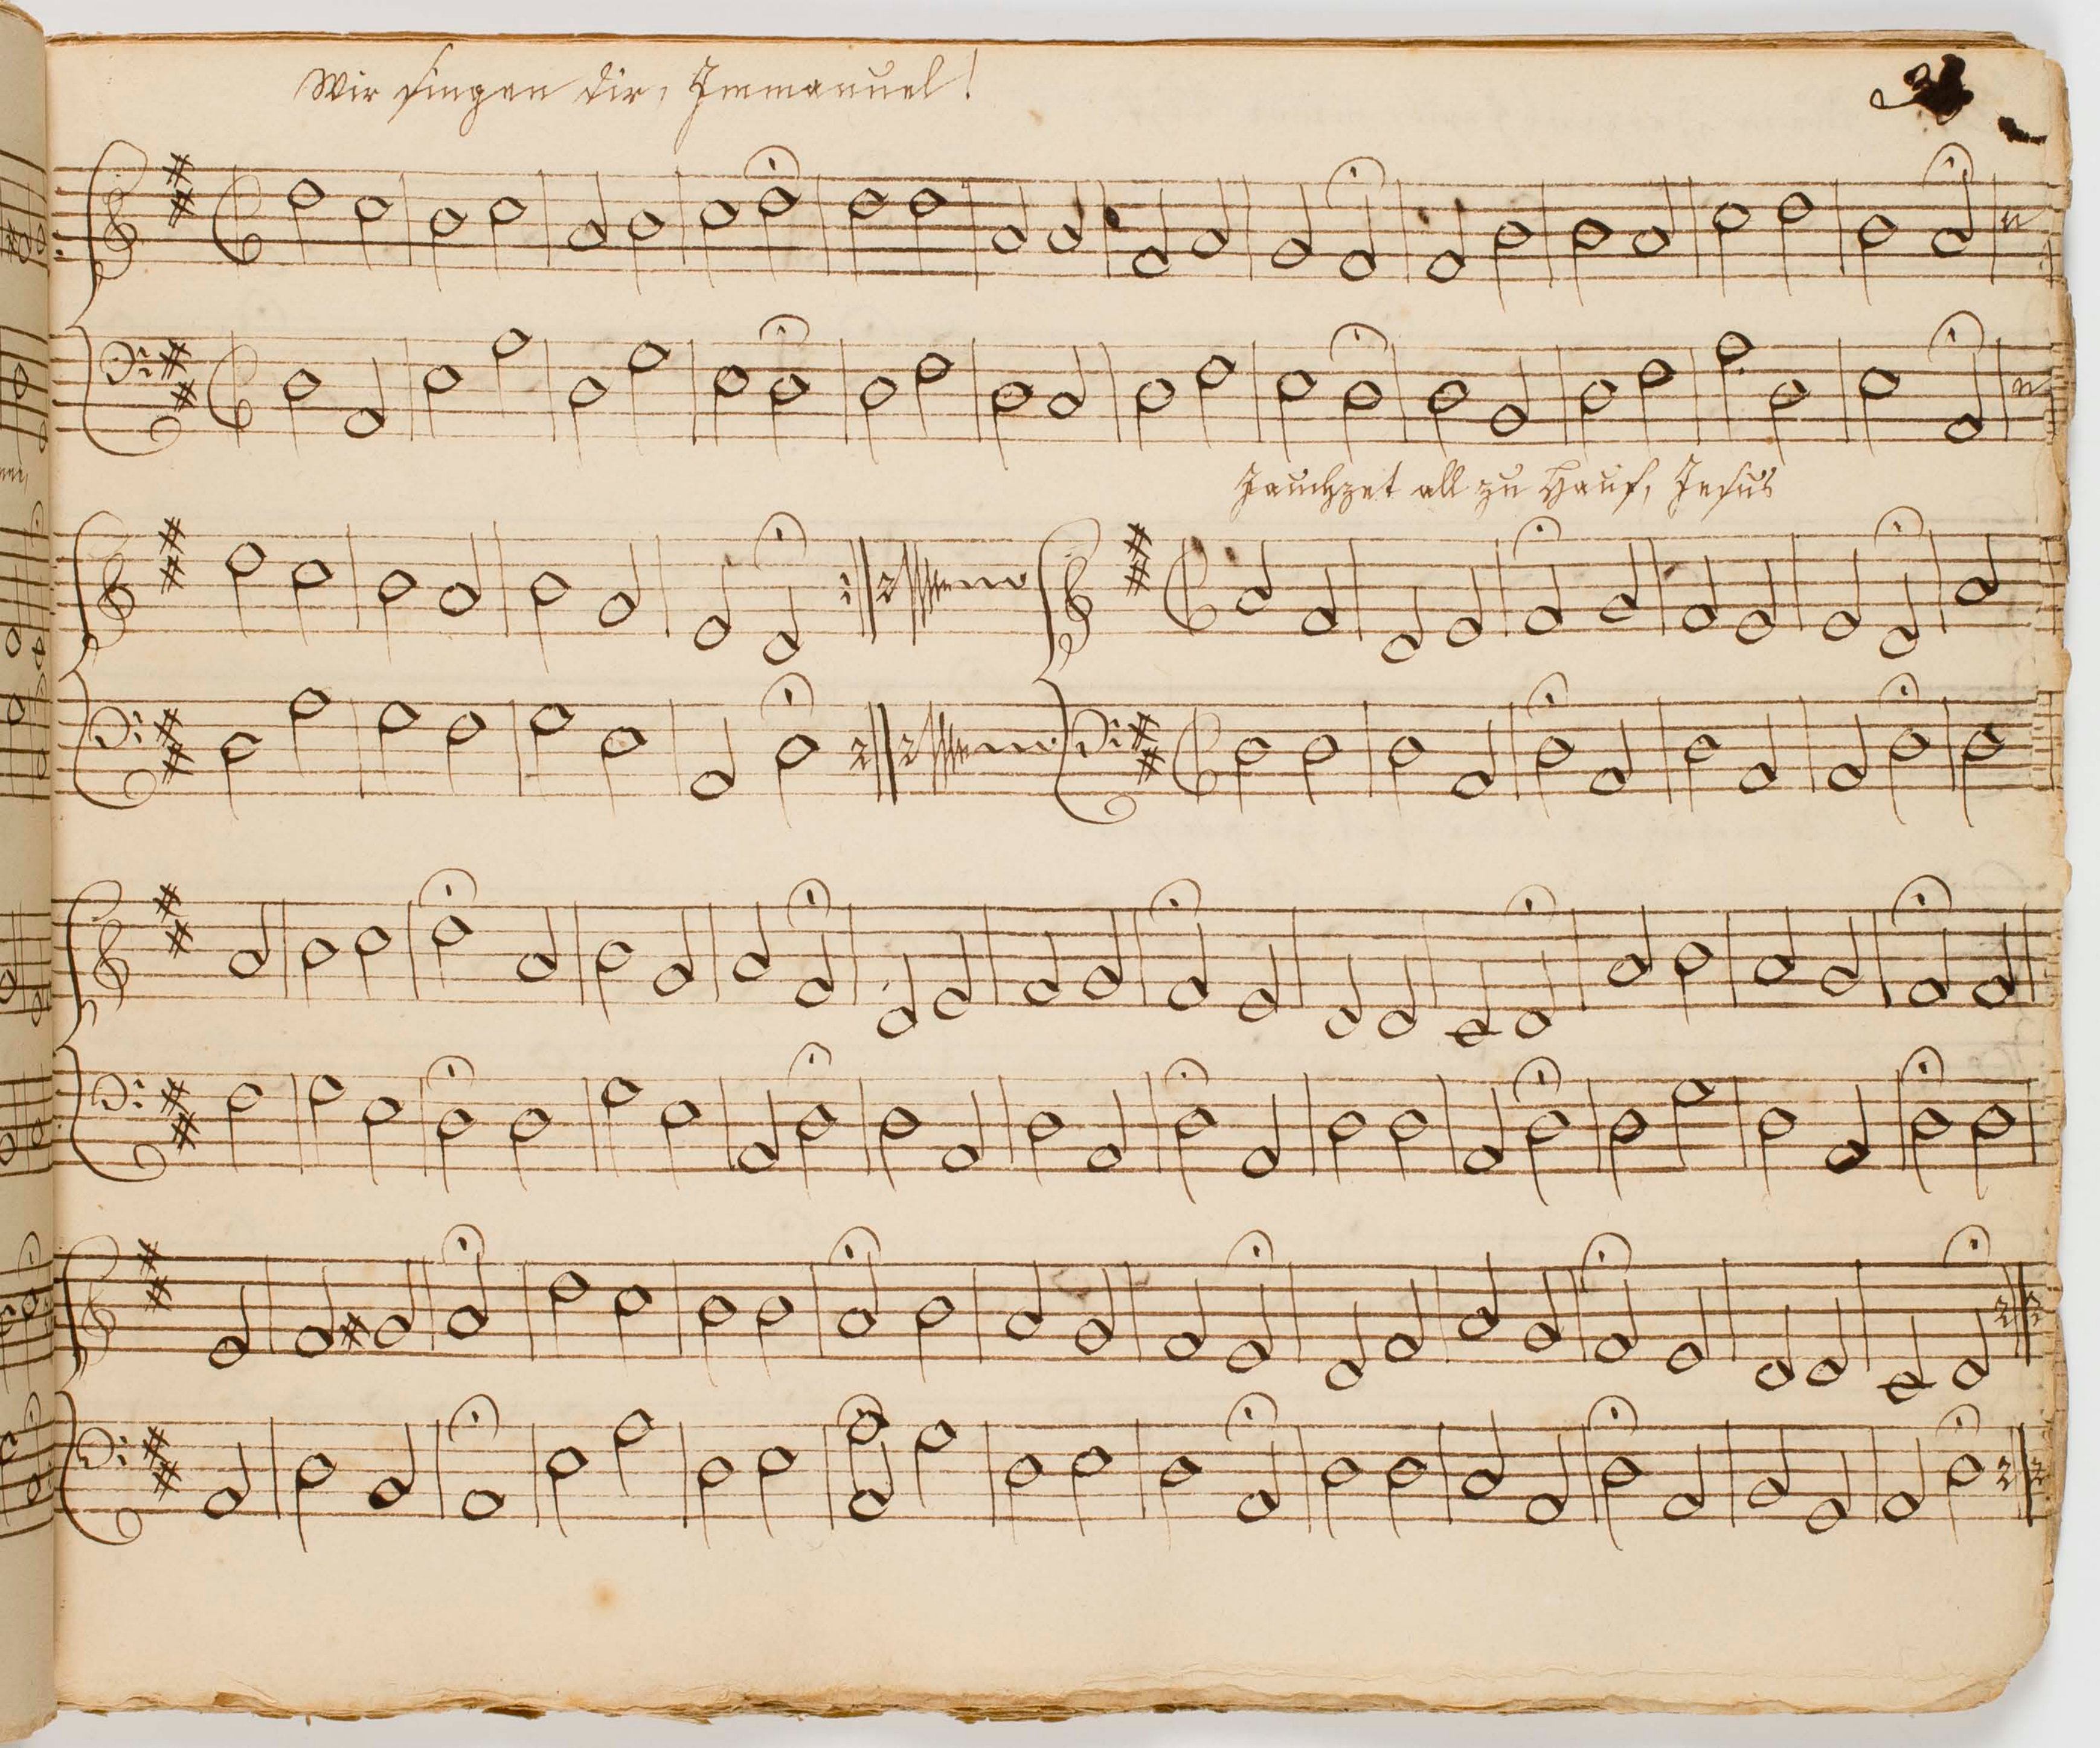 Wir singen dir, Immanuel!
Jauchzet all zu Hauf, Jesus